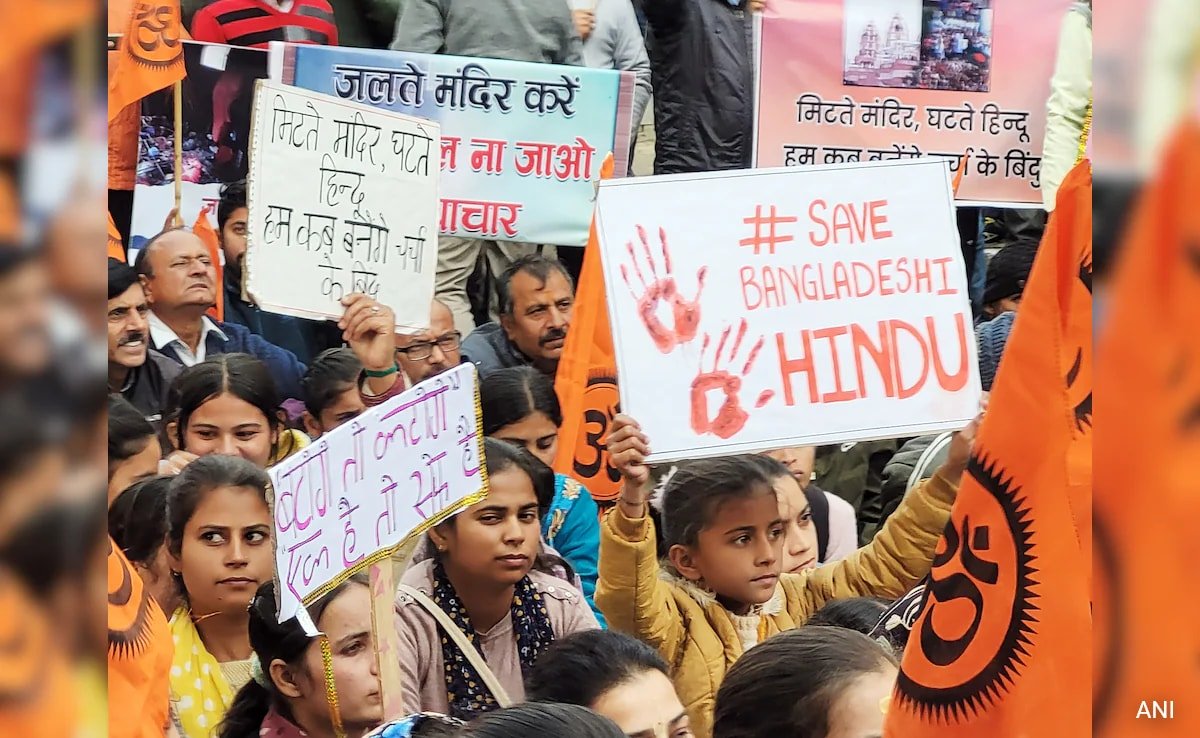 जलते मंदिर करें
ल ना जाओ
मिटते मंदिर, घटते
हिन्दू
हम कब बनेंगे चर्चा
के
मिटते मंदिर, घटते हिन्दू
हम कब बनेंगे चर्चा के बिंदु
# SAVE
BANGLADESHI
HINDU
बटोगे तो कटोगे
एक है तो सेफ है
ANI